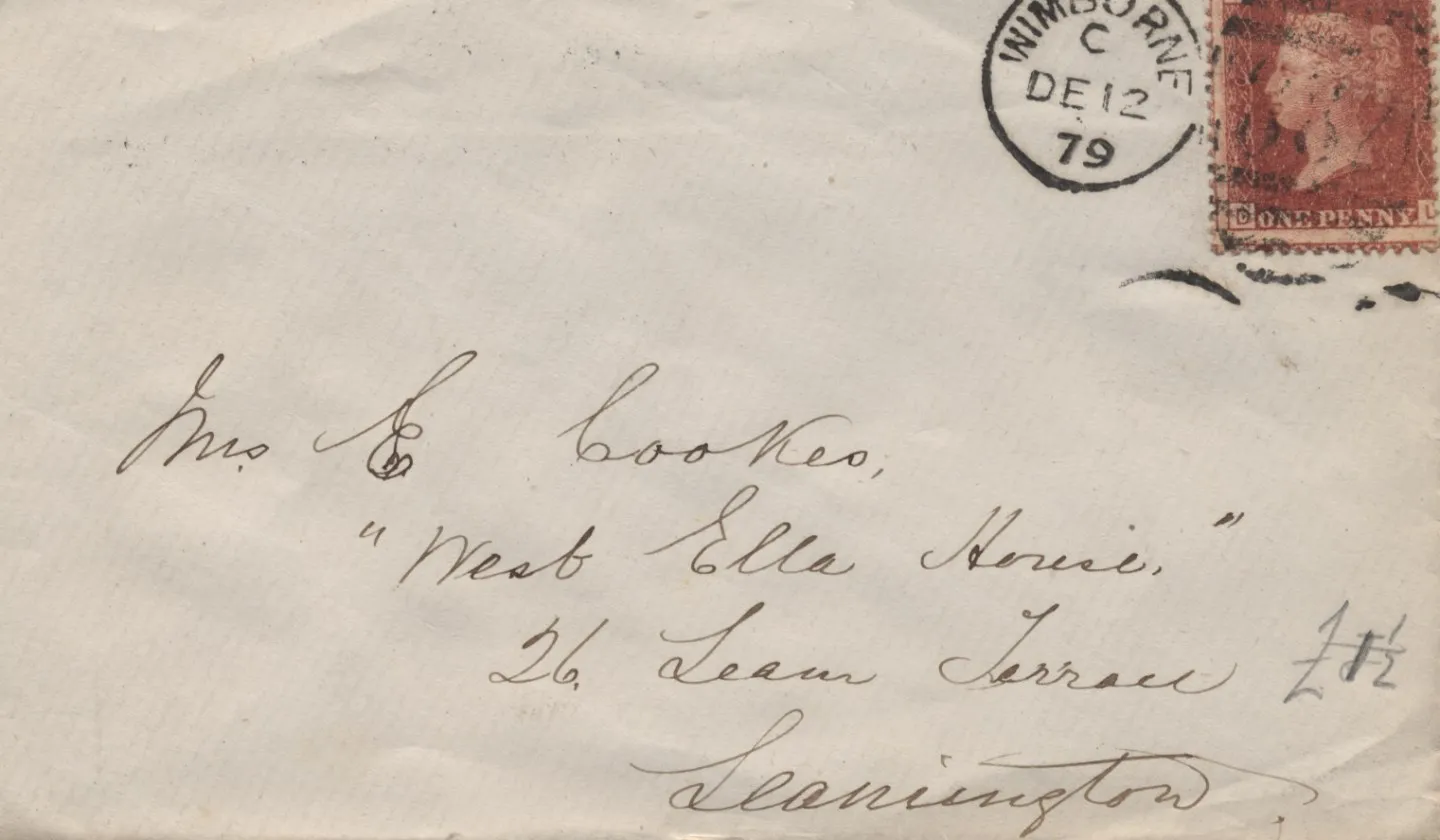 WIMBORNE
C
DE 12
79
ONE PENNY L
Mrs. E Cookes,
"West Ella House."
26. Leam Terrace
£1½
Leamington